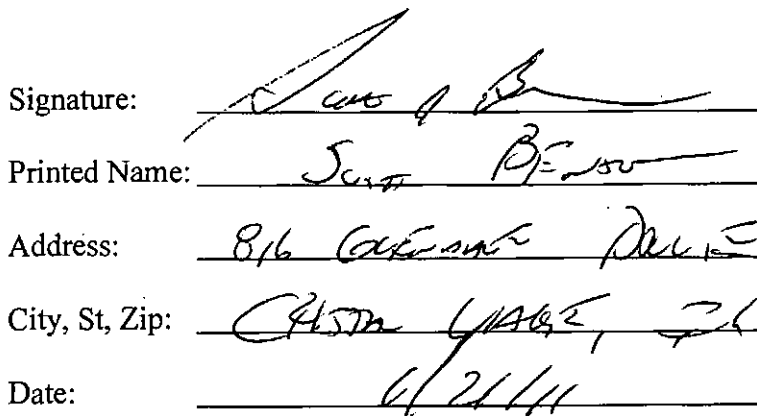 Signature: Scott J B
Printed Name: Scott Benson
Address: 816 Drive
City, St, Zip: Crystal Lake, IL
Date: 6/21/11